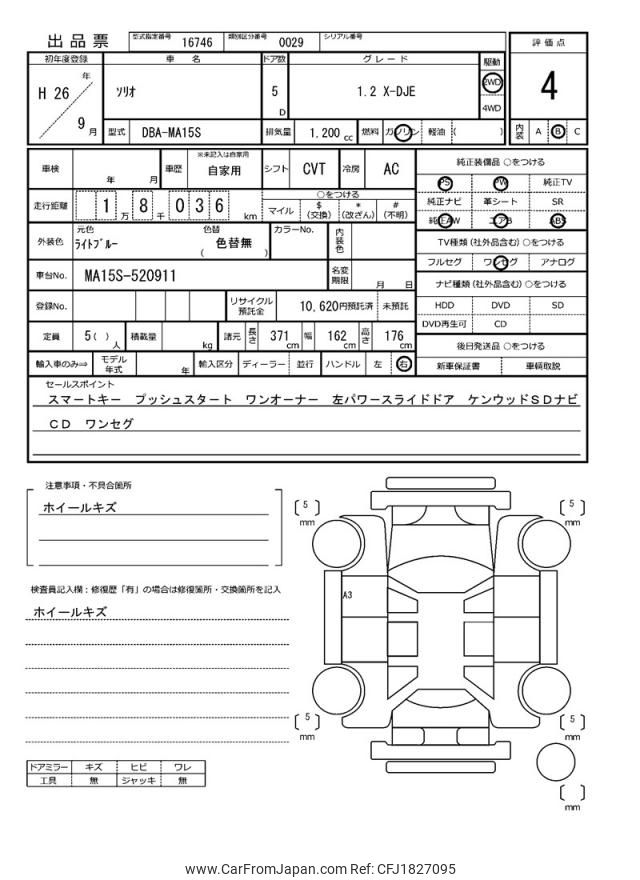 出品票 型式指定番号 16746 類別区分番号 0029 シリアル番号
初年度登録 車名 ドア数 グレード 駆動 評価点
H 26 年 9 月 ソリオ 5 D 1.2 X-DJE 2WD 4WD 4
型式 DBA-MA15S 排気量 1.200 cc 燃料 ガソリン 軽油 ( ) 内装 A B C
車検 年 月 車歴 ※未記入は自家用 自家用 シフト CVT 冷房 AC
走行距離 1 万 8 千 0 3 6 km ○をつける マイル $ (交換) * (改ざん) # (不明)
外装色 元色 ライトブルー 色替 ( 色替無 ) カラーNo. 内装色
車台No. MA15S-520911 名変期限 月 日
登録No. リサイクル預託金 10,620円預託済 未預託
定員 5( ) 人 積載量 kg 諸元 長さ 371 cm 幅 162 cm 高さ 176 cm
輸入車のみ⇒ モデル年式 年 輸入区分 ディーラー 並行 ハンドル 左 右
純正装備品 ○をつける
PS PW 純正TV
純正ナビ 革シート SR
純正AW エアB ABS
TV種類 (社外品含む) ○をつける
フルセグ ワンセグ アナログ
ナビ種類 (社外品含む) ○をつける
HDD DVD SD
DVD再生可 CD
後日発送品 ○をつける
新車保証書 車輌取説
セールスポイント
スマートキー プッシュスタート ワンオーナー 左パワースライドドア ケンウッドSDナビ
CD ワンセグ
注意事項・不具合箇所
ホイールキズ
検査員記入欄：修復歴「有」の場合は修復箇所・交換箇所を記入
ホイールキズ
ドアミラー キズ ヒビ ワレ
工具 無 ジャッキ 無
〔 5 〕 mm
〔 5 〕 mm
A3
〔 5 〕 mm
〔 5 〕 mm
〔 〕 mm
www.CarFromJapan.com Ref: CFJ1827095